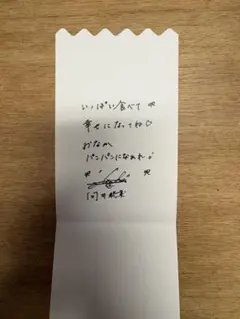 いっぱい食べて
幸せになってね♡
おなか
パンパンになあれ♪